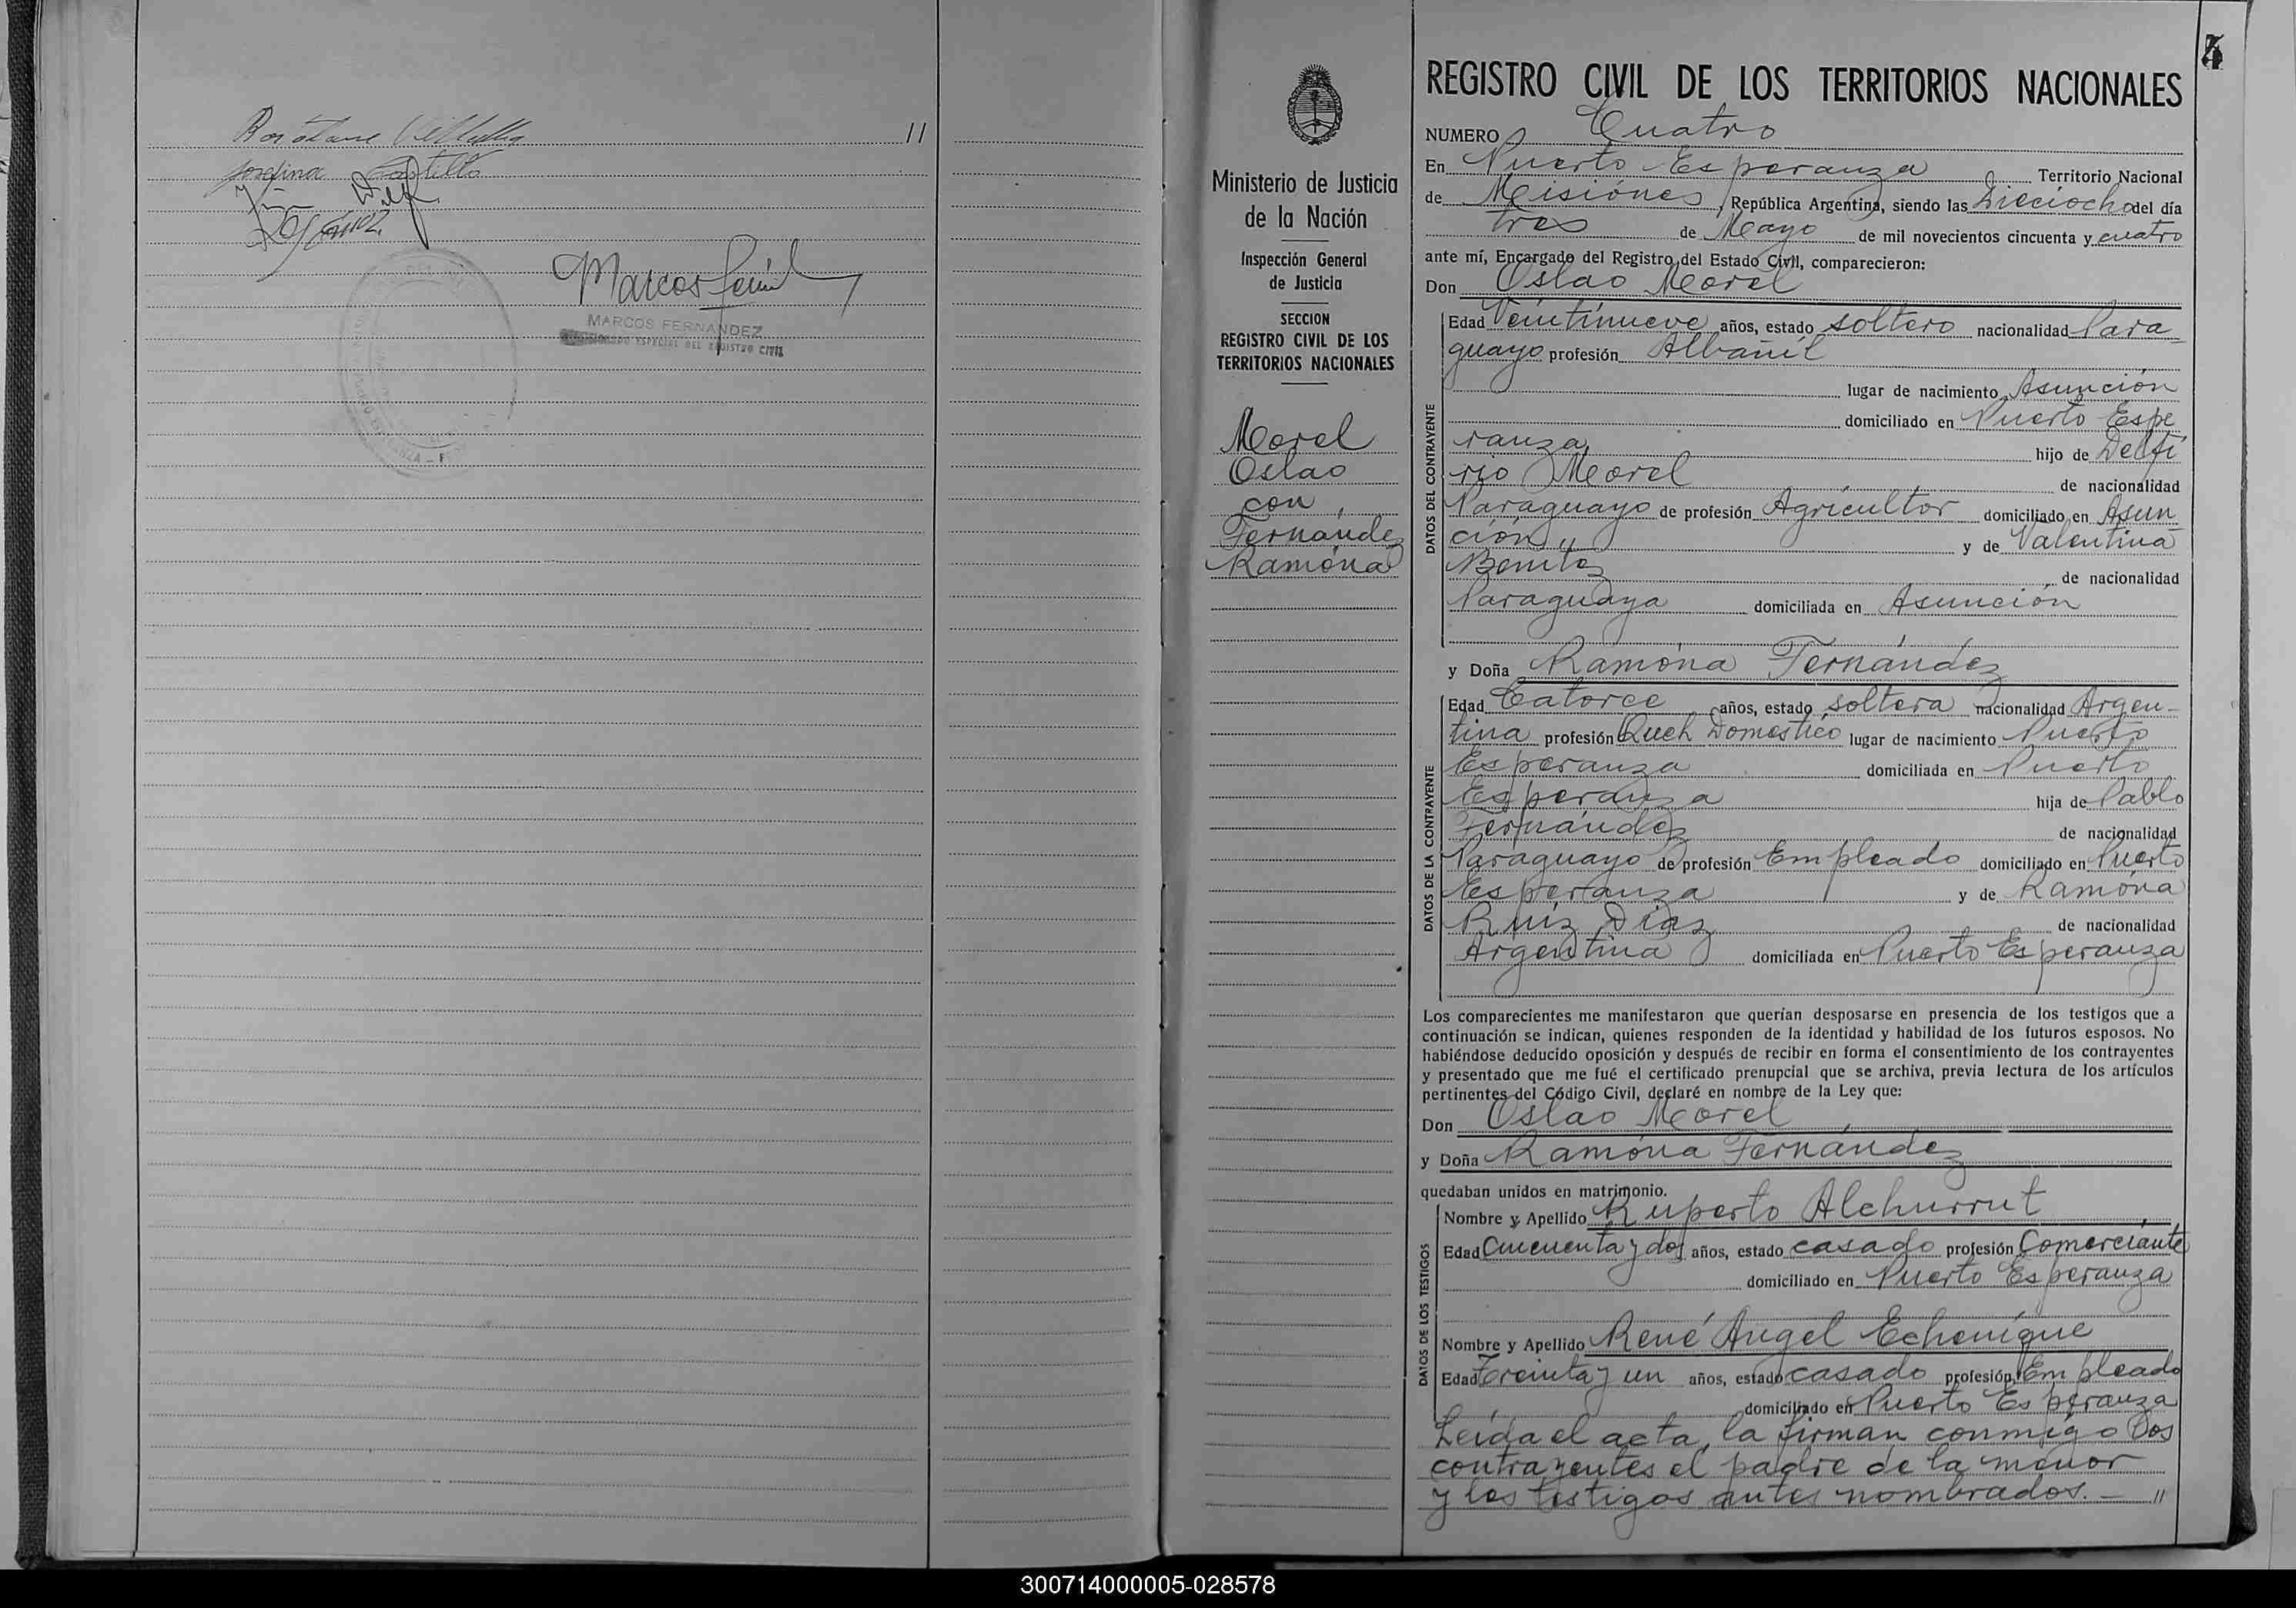 Josefina Castillo
Marcos
MARCOS FERNANDEZ
ESPECIAL DEL REGISTRO CIVIL
4
Ministerio de Justicia
de la Nación
Inspección General
de Justicia
SECCION
REGISTRO CIVIL DE LOS
TERRITORIOS NACIONALES
Morel
Oslao
con
Fernández
Ramóna
REGISTRO CIVIL DE LOS TERRITORIOS NACIONALES
NUMERO Cuatro
En Puerto Esperanza Territorio Nacional
de Misiónes, República Argentina, siendo las Dieciocho del día
tres de Mayo de mil novecientos cincuenta y cuatro
ante mí, Encargado del Registro del Estado Civil, comparecieron:
Don Oslao Morel
DATOS DEL CONTRAYENTE
Edad Veintinueve años, estado soltero nacionalidad Para
guayo profesión Albañil
lugar de nacimiento Asunción
domiciliado en Puerto Espe
ranza, hijo de Delfi
rio Morel de nacionalidad
Paraguayo de profesión Agricultor domiciliado en Asun
ción y de Valentina
Benítez de nacionalidad
Paraguaya domiciliada en Asunción
y Doña Ramóna Fernández
DATOS DE LA CONTRAYENTE
Edad Catorce años, estado soltera nacionalidad Argen-
tina profesión Queh Domestico lugar de nacimiento Puerto
Esperanza domiciliada en Puerto
Esperanza hija de Pablo
Fernández de nacionalidad
Paraguayo de profesión Empleado domiciliado en Puerto
Esperanza y de Ramóna
Ruíz Díaz de nacionalidad
Argentina domiciliada en Puerto Esperanza
Los comparecientes me manifestaron que querían desposarse en presencia de los testigos que a
continuación se indican, quienes responden de la identidad y habilidad de los futuros esposos. No
habiéndose deducido oposición y después de recibir en forma el consentimiento de los contrayentes
y presentado que me fué el certificado prenupcial que se archiva, previa lectura de los artículos
pertinentes del Código Civil, declaré en nombre de la Ley que:
Don Oslao Morel
y Doña Ramóna Fernández
quedaban unidos en matrimonio.
DATOS DE LOS TESTIGOS
Nombre y Apellido Ruperto Alchurrut
Edad Cincuenta y dos años, estado casado profesión Comerciante
domiciliado en Puerto Esperanza
Nombre y Apellido René Angel Echenique
Edad Treinta y un años, estado casado profesión Empleado
domiciliado en Puerto Esperanza
Leída el acta, la firman conmigo los
contrayentes el padre de la menor
y los testigos antes nombrados. — //
300714000005-028578